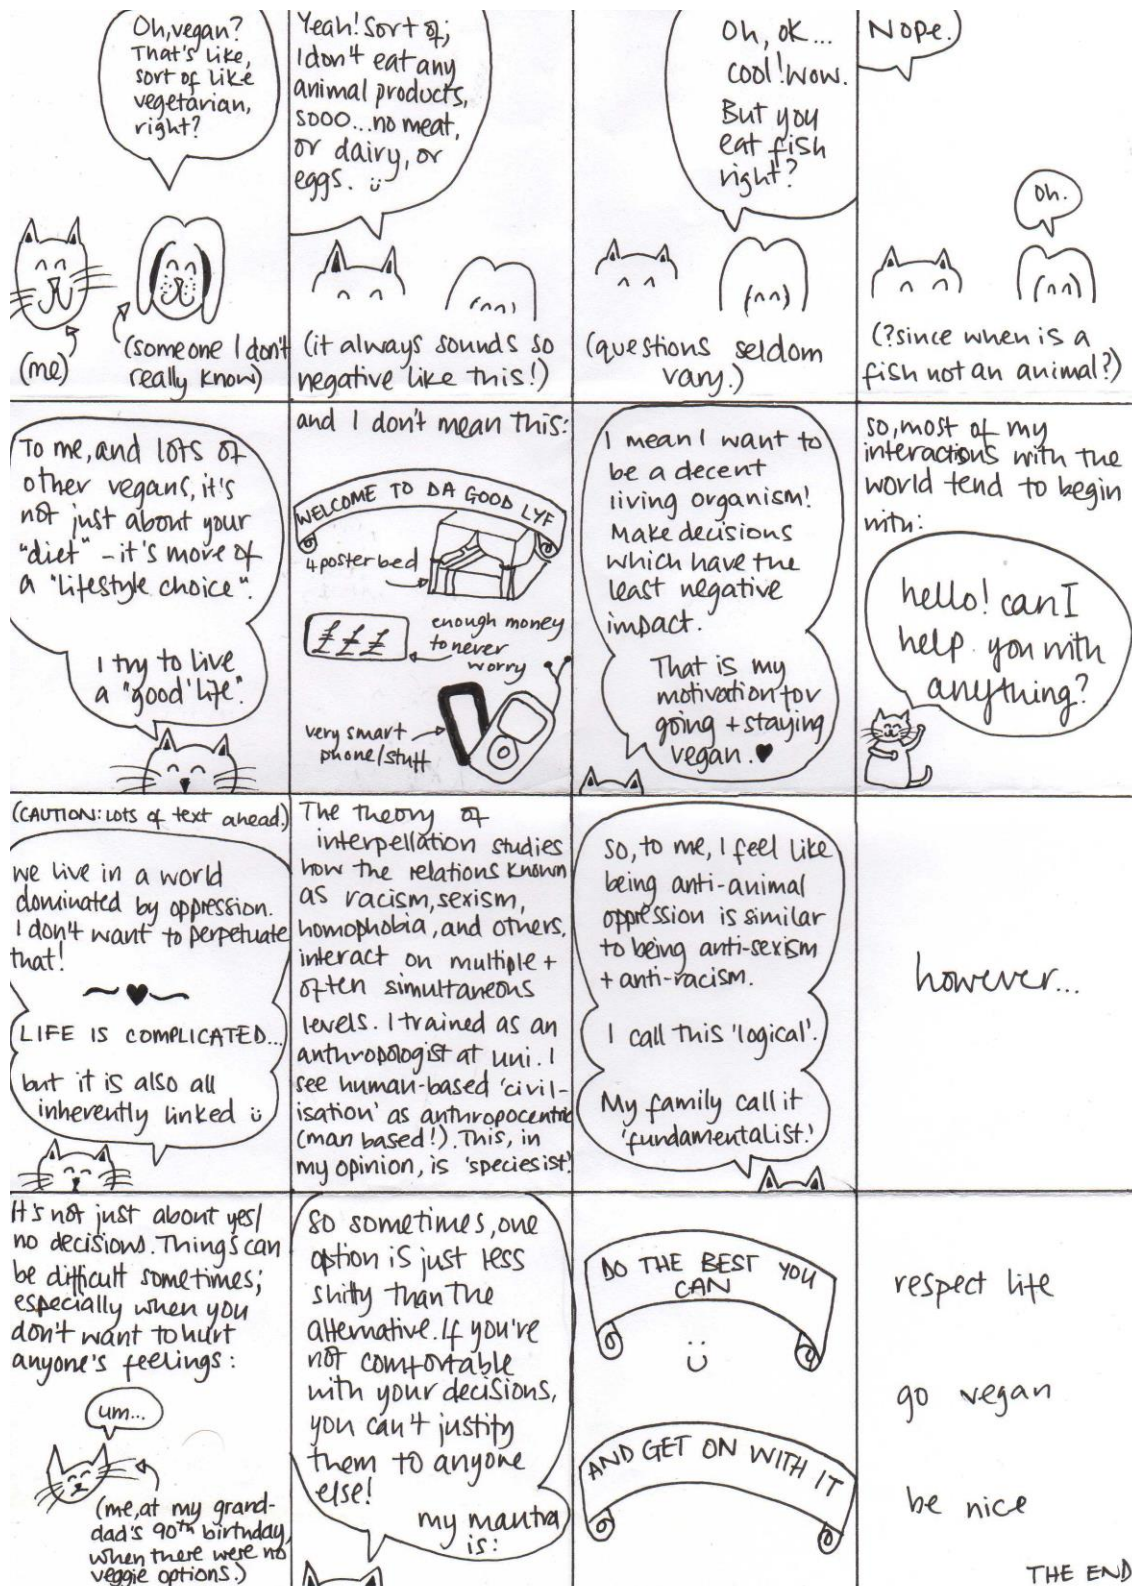 Oh, vegan?
That's like,
sort of like
vegetarian,
right?
(me)
(someone I don't
really know)
Yeah! Sort of;
I don't eat any
animal products,
sooo... no meat,
or dairy, or
eggs. :)
(it always sounds so
negative like this!)
Oh, ok...
cool! wow.
But you
eat fish
right?
(questions seldom
vary.)
Nope.
Oh.
(?since when is a
fish not an animal?)
To me, and lots of
other vegans, it's
not just about your
"diet" - it's more of
a "lifestyle choice".
I try to live
a "good life".
and I don't mean this:
WELCOME TO DA GOOD LYF
4 poster bed
£££
enough money
to never
worry
very smart
phone/stuff
I mean I want to
be a decent
living organism!
Make decisions
which have the
least negative
impact.
That is my
motivation for
going + staying
vegan. ♥
so, most of my
interactions with the
world tend to begin
with:
hello! can I
help you with
anything?
(CAUTION: Lots of text ahead.)
we live in a world
dominated by oppression.
I don't want to perpetuate
that!
~♥~
LIFE IS COMPLICATED...
but it is also all
inherently linked :)
The theory of
interpellation studies
how the relations known
as racism, sexism,
homophobia, and others,
interact on multiple +
often simultaneous
levels. I trained as an
anthropologist at uni. I
see human-based 'civil-
isation' as anthropocentric
(man based!). This, in
my opinion, is 'speciesist'.
So, to me, I feel like
being anti-animal
oppression is similar
to being anti-sexism
+ anti-racism.
I call this 'logical'.
My family call it
'fundamentalist.'
however...
It's not just about yes/
no decisions. Things can
be difficult sometimes;
especially when you
don't want to hurt
anyone's feelings:
um...
(me, at my grand-
dad's 90th birthday,
when there were no
veggie options.)
So sometimes, one
option is just less
shitty than the
alternative. If you're
not comfortable
with your decisions,
you can't justify
them to anyone
else!
my mantra
is:
DO THE BEST YOU
CAN
:)
AND GET ON WITH IT
respect life
go vegan
be nice
THE END